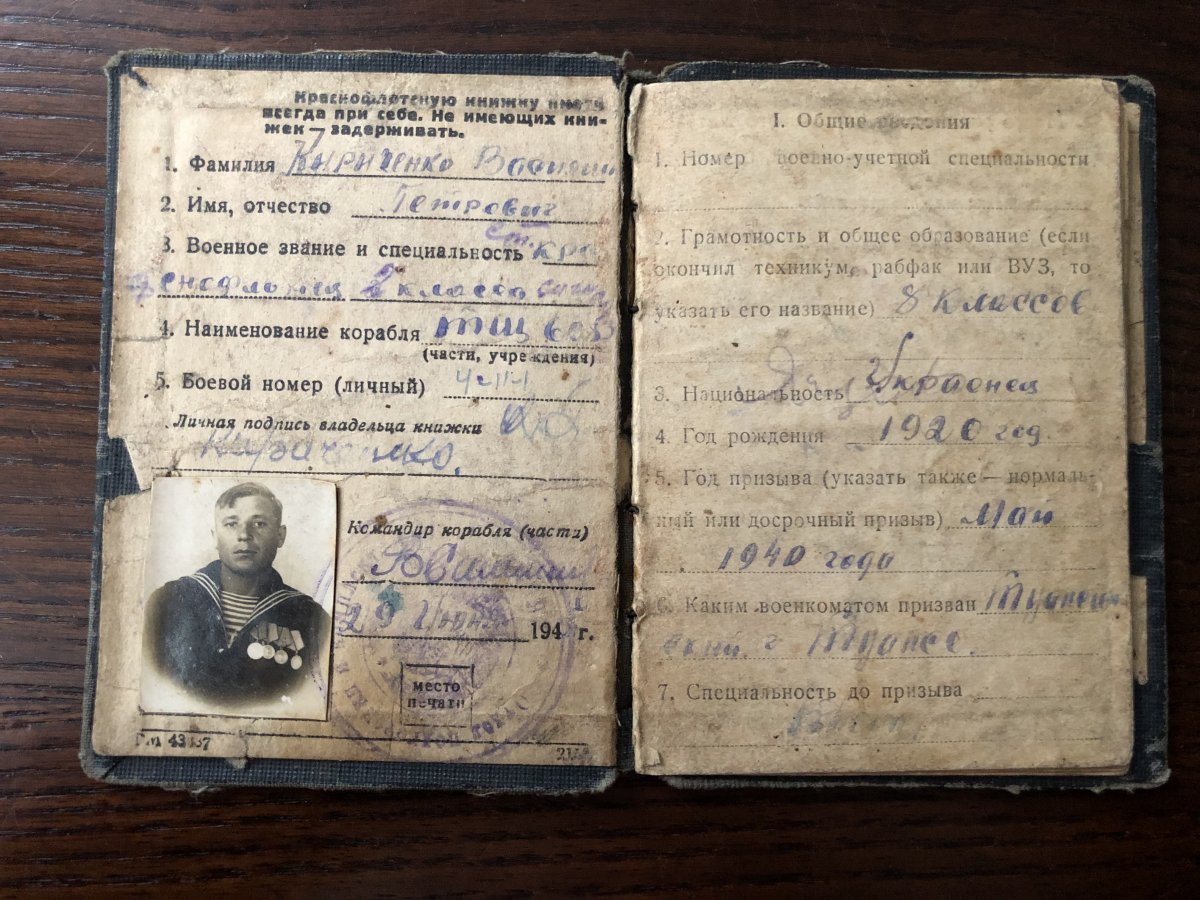 Краснофлотскую книжку иметь
всегда при себе. Не имеющих кни-
жек — задерживать.
1. Фамилия Кириченко
2. Имя, отчество Петрович
3. Военное звание и специальность ст. кра
снофлотец 2 класса
4. Наименование корабля ТЩ
(части, учреждения)
5. Боевой номер (личный)
Личная подпись владельца книжки
Кириченко.
Командир корабля (части)
29 194 г.
место
печати
I. Общие сведения
1. Номер военно-учетной специальности
2. Грамотность и общее образование (если
окончил техникум, рабфак или ВУЗ, то
указать его название) 8 классов
3. Национальность Украонец
4. Год рождения 1920 год.
5. Год призыва (указать также — нормаль-
ный или досрочный призыв) Май
1940 года
6. Каким военкоматом призван Туапсин
ский г. Туапсе.
7. Специальность до призыва